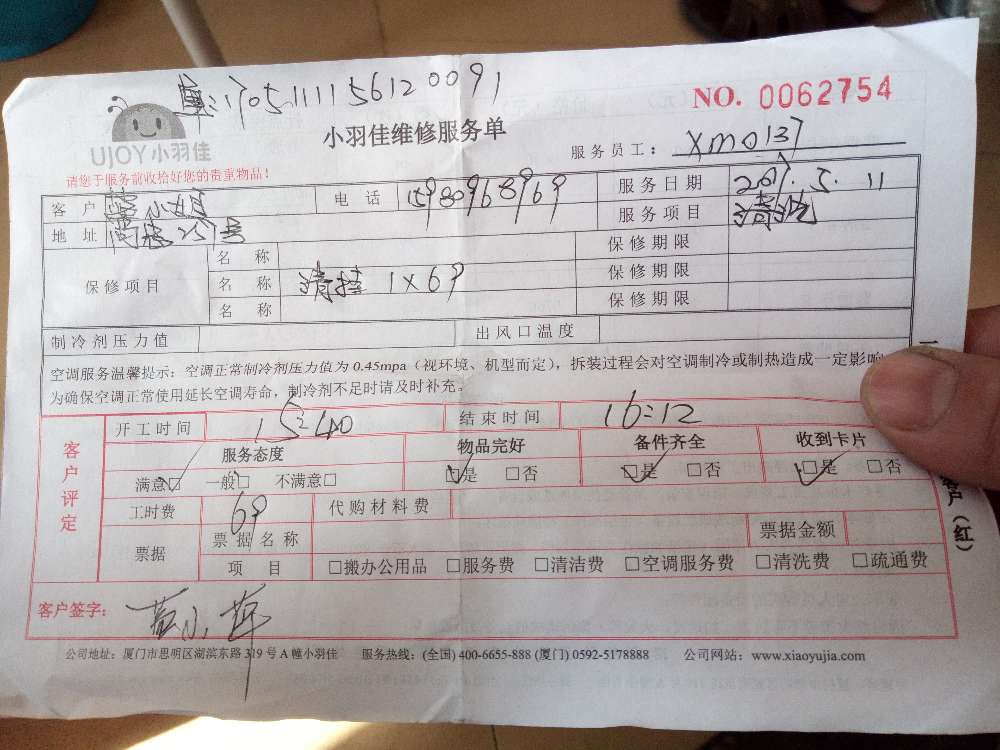 单号1705111156120091
NO. 0062754
UJOY小羽佳
小羽佳维修服务单
服务员工： XM0137
请您于服务前收拾好您的贵重物品！
客 户 小姐 电 话 15980968969 服务日期 2017.5.11
地 址 257号 服务项目 清洗
保修项目 名 称 保修期限
名 称 清挂 1×69 保修期限
名 称 保修期限
制冷剂压力值 出风口温度
空调服务温馨提示：空调正常制冷剂压力值为 0.45mpa（视环境、机型而定），拆装过程会对空调制冷或制热造成一定影响
为确保空调正常使用延长空调寿命，制冷剂不足时请及时补充。
客户评定 开工时间 15:40 结束时间 16:12
服务态度 物品完好 备件齐全 收到卡片
满意□ 一般□ 不满意□ □是 □否 □是 □否 □是 □否
工时费 69 代购材料费
票据 票据名称 票据金额
项 目 □搬办公用品 □服务费 □清洁费 □空调服务费 □清洗费 □疏通费
客户签字：
公司地址：厦门市思明区湖滨东路 319 号 A 幢小羽佳 服务热线：(全国) 400-6655-888 (厦门) 0592-5178888 公司网站：www.xiaoyujia.com
客户（红）